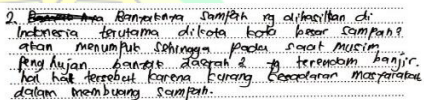 2. Banyaknya sampah yg dihasilkan di
Indonesia terutama dikota kota besar sampah2
akan menumpuk sehingga pada saat musim
penghujan banyak daerah2 yg terendam banjir.
hal hal tersebut karena kurang kesadaran masyarakat
dalam membuang sampah.